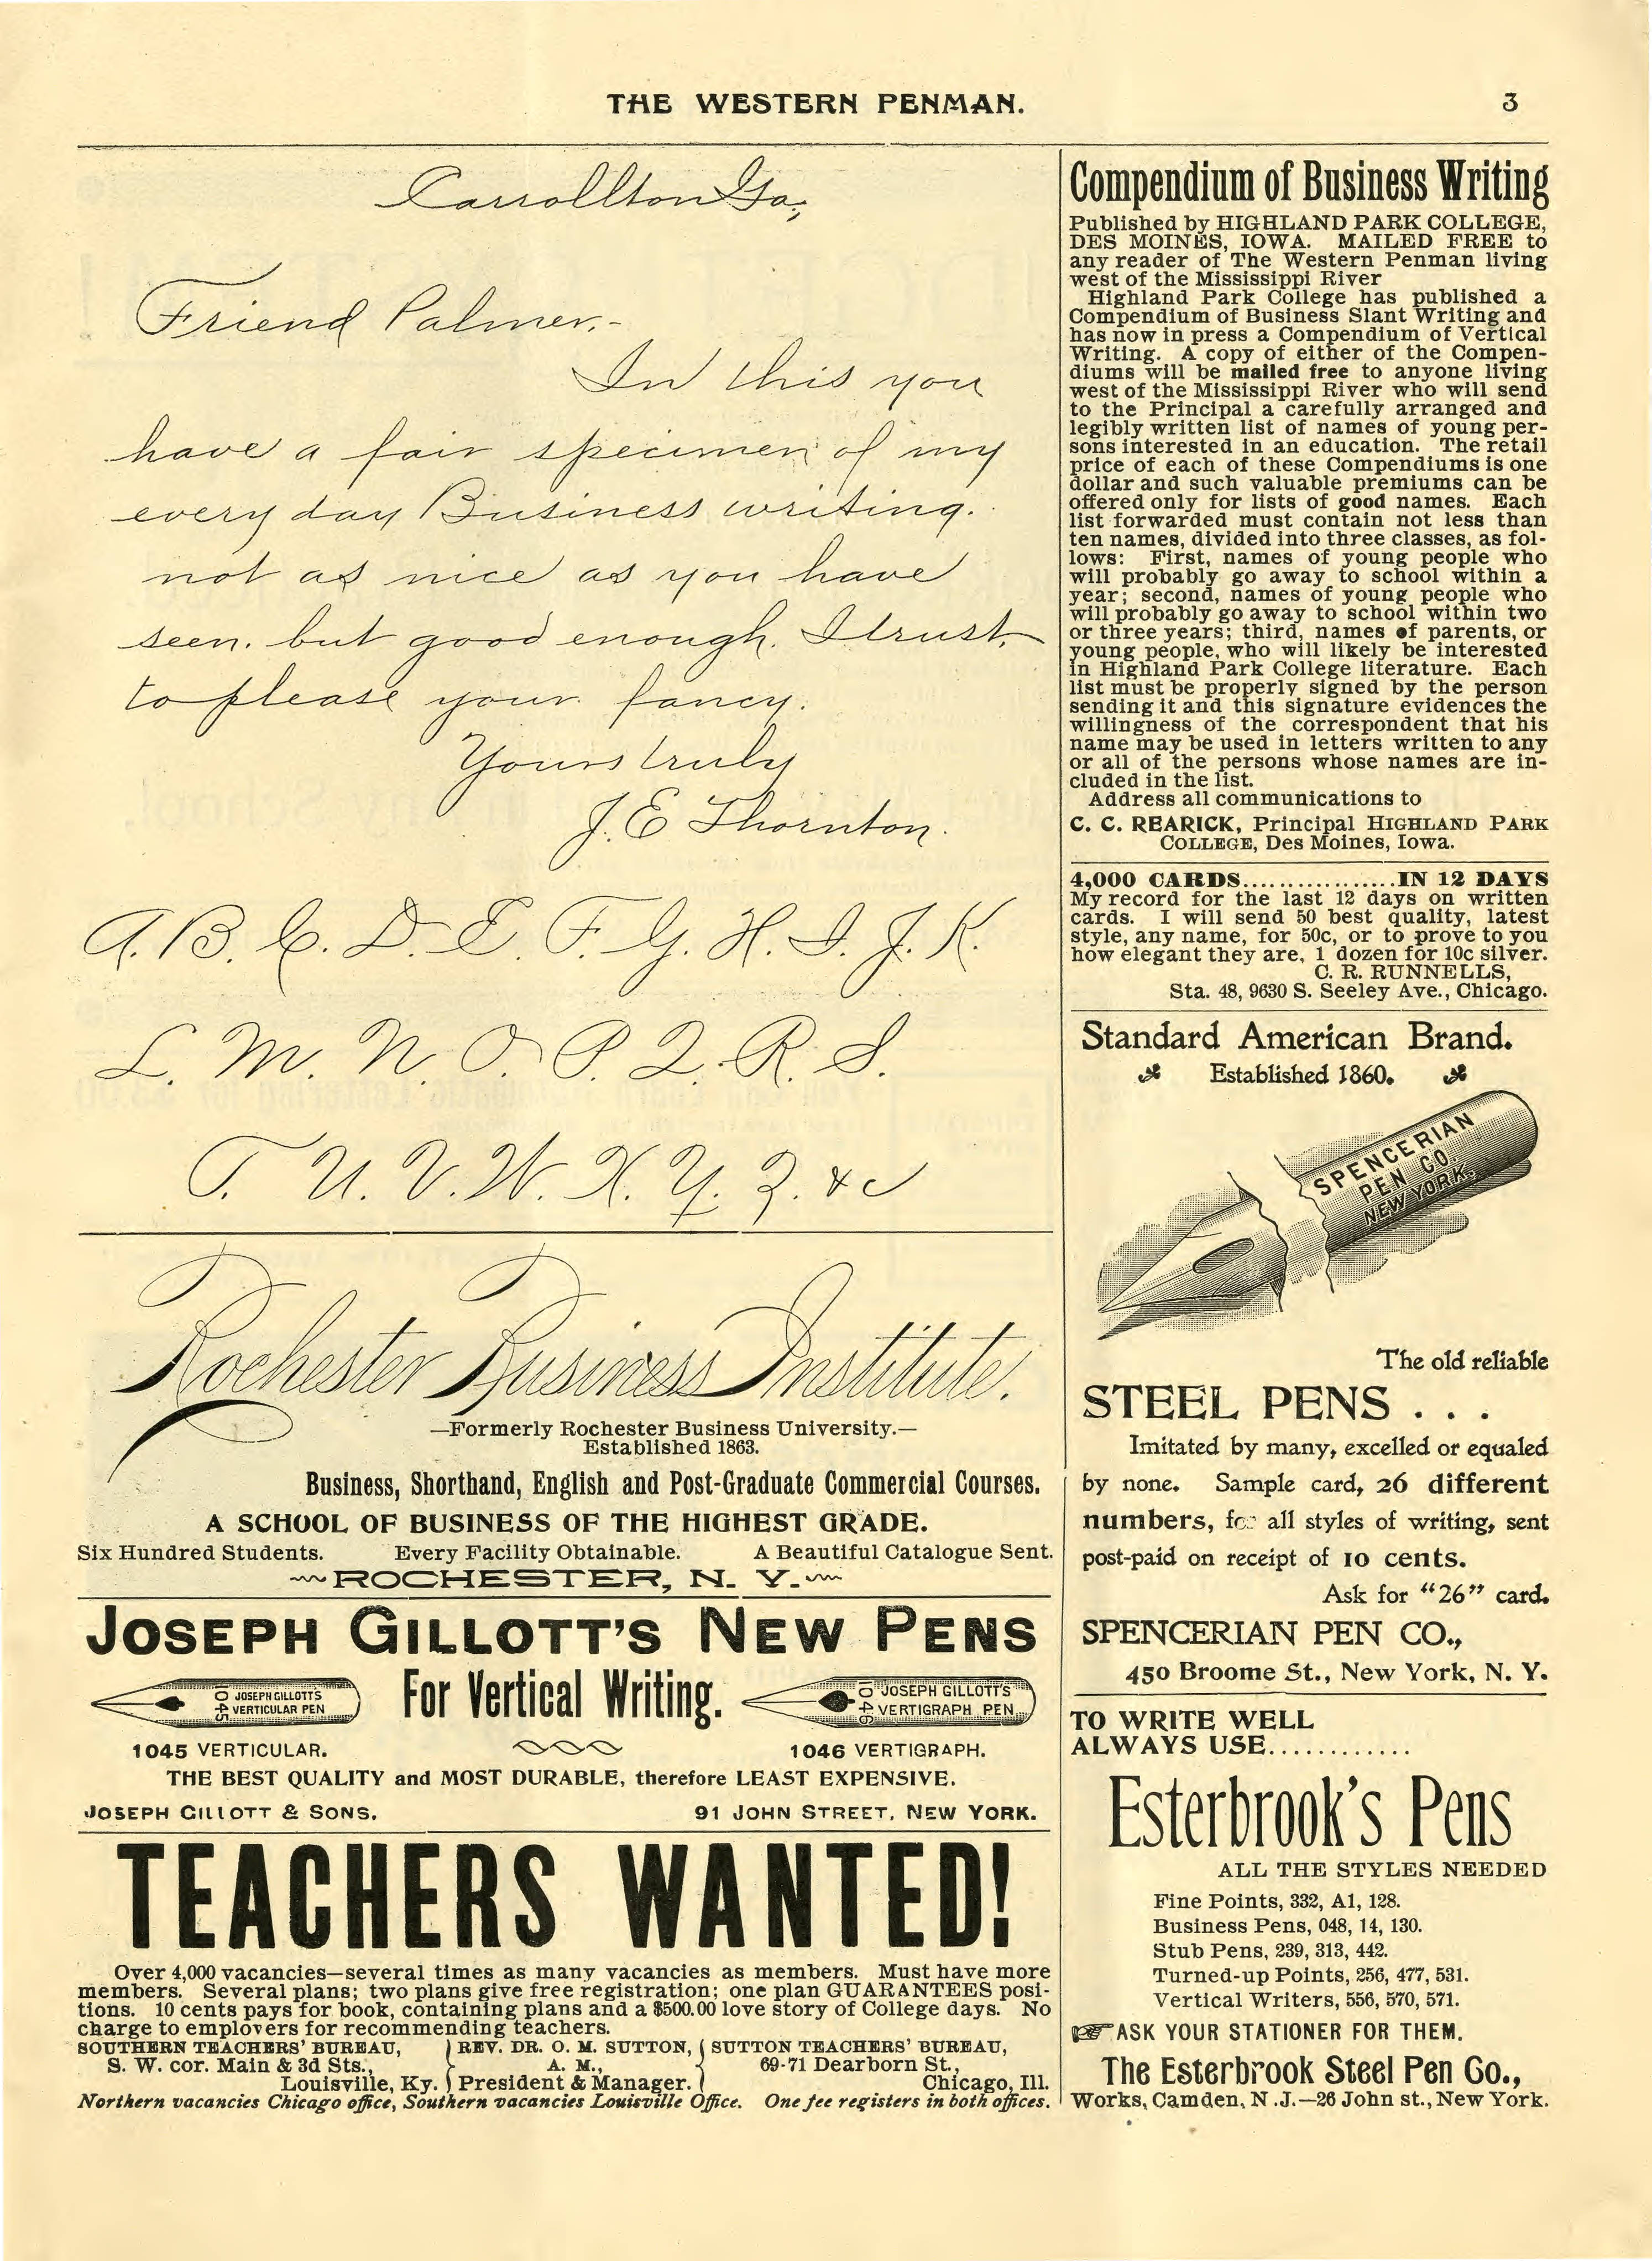 THE WESTERN PENMAN.
3
Carrollton Ga.,
Friend Palmer,-
In this you
have a fair specimen of my
every day Business writing.
not as nice as you have
seen. but good enough. I trust,
to please your fancy.
Yours truly
J. E. Thornton.
A. B. C. D. E. F. G. H. I. J. K.
L. M. N. O. P. Q. R. S.
T. U. V. W. X. Y. Z. &c
Rochester Business Institute.
—Formerly Rochester Business University.—
Established 1863.
Business, Shorthand, English and Post-Graduate Commercial Courses.
A SCHOOL OF BUSINESS OF THE HIGHEST GRADE.
Six Hundred Students. Every Facility Obtainable. A Beautiful Catalogue Sent.
ROCHESTER, N. Y.
JOSEPH GILLOTT'S NEW PENS
For Vertical Writing.
1045 JOSEPH GILLOTT'S
VERTICULAR PEN
1046 JOSEPH GILLOTT'S
VERTIGRAPH PEN
1045 VERTICULAR.
1046 VERTIGRAPH.
THE BEST QUALITY and MOST DURABLE, therefore LEAST EXPENSIVE.
JOSEPH GILLOTT & SONS. 91 JOHN STREET, NEW YORK.
TEACHERS WANTED!
Over 4,000 vacancies—several times as many vacancies as members. Must have more
members. Several plans; two plans give free registration; one plan GUARANTEES posi-
tions. 10 cents pays for book, containing plans and a $500.00 love story of College days. No
charge to employers for recommending teachers.
SOUTHERN TEACHERS' BUREAU,
S. W. cor. Main & 3d Sts.,
Louisville, Ky.
REV. DR. O. M. SUTTON,
A. M.,
President & Manager.
SUTTON TEACHERS' BUREAU,
69-71 Dearborn St.,
Chicago, Ill.
Northern vacancies Chicago office, Southern vacancies Louisville Office. One fee registers in both offices.
Compendium of Business Writing
Published by HIGHLAND PARK COLLEGE,
DES MOINES, IOWA. MAILED FREE to
any reader of The Western Penman living
west of the Mississippi River
Highland Park College has published a
Compendium of Business Slant Writing and
has now in press a Compendium of Vertical
Writing. A copy of either of the Compen-
diums will be mailed free to anyone living
west of the Mississippi River who will send
to the Principal a carefully arranged and
legibly written list of names of young per-
sons interested in an education. The retail
price of each of these Compendiums is one
dollar and such valuable premiums can be
offered only for lists of good names. Each
list forwarded must contain not less than
ten names, divided into three classes, as fol-
lows: First, names of young people who
will probably go away to school within a
year; second, names of young people who
will probably go away to school within two
or three years; third, names of parents, or
young people, who will likely be interested
in Highland Park College literature. Each
list must be properly signed by the person
sending it and this signature evidences the
willingness of the correspondent that his
name may be used in letters written to any
or all of the persons whose names are in-
cluded in the list.
Address all communications to
C. C. REARICK, Principal HIGHLAND PARK
COLLEGE, Des Moines, Iowa.
4,000 CARDS..................IN 12 DAYS
My record for the last 12 days on written
cards. I will send 50 best quality, latest
style, any name, for 50c, or to prove to you
how elegant they are, 1 dozen for 10c silver.
C. R. RUNNELLS,
Sta. 48, 9630 S. Seeley Ave., Chicago.
Standard American Brand.
Established 1860.
SPENCERIAN
PEN CO.
NEW YORK.
The old reliable
STEEL PENS . . .
Imitated by many, excelled or equaled
by none. Sample card, 26 different
numbers, for all styles of writing, sent
post-paid on receipt of 10 cents.
Ask for "26" card.
SPENCERIAN PEN CO.,
450 Broome St., New York, N. Y.
TO WRITE WELL
ALWAYS USE............
Esterbrook's Pens
ALL THE STYLES NEEDED
Fine Points, 332, A1, 128.
Business Pens, 048, 14, 130.
Stub Pens, 239, 313, 442.
Turned-up Points, 256, 477, 531.
Vertical Writers, 556, 570, 571.
☞ASK YOUR STATIONER FOR THEM.
The Esterbrook Steel Pen Co.,
Works, Camden, N .J.—26 John st., New York.